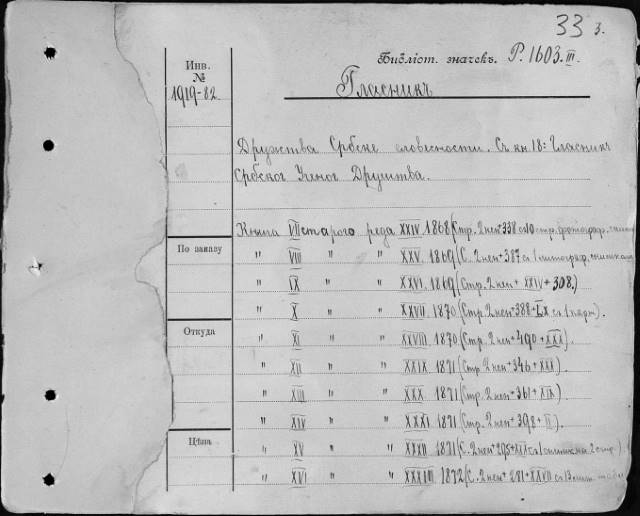 33 3.
Библіот. значекъ. Р. 1603. III.
Инв.
№
1919-82
Гласникъ
Дружства Србске словесности. Съ кн. 18: Гласникъ
Србског Ученог Друштва.
Книга VII старого реда XXIV 1868 (Стр. 2 нен + 338 съ 10 стр. фотограф.
По заказу
" VIII " " XXV. 1869 (С. 2 нен + 387 съ 1
" IX " " XXVI. 1869 (Стр. 2 нен + XXIV + 308.)
" X " " XXVII. 1870 (Стр. 2 нен + 388 + LX съ 1 карт).
Откуда
" XI " " XXVIII. 1870 (Стр. 2 нен + 490 + XXX).
" XII " " XXIX. 1871 (Стр. 2 нен + 346 + XXX).
" XIII " " XXX. 1871 (Стр. 2 нен + 361 + XIX)
" XIV " " XXXI. 1871 (Стр. 2 нен + 398 + II).
Цѣна
" XV " " XXXII. 1871 (С. 2 нен + 295 + XIX съ 1 снимк на 2 стр.)
" XVI " " XXXIII. 1872 (С. 2 нен + 281 + XXVII съ 13